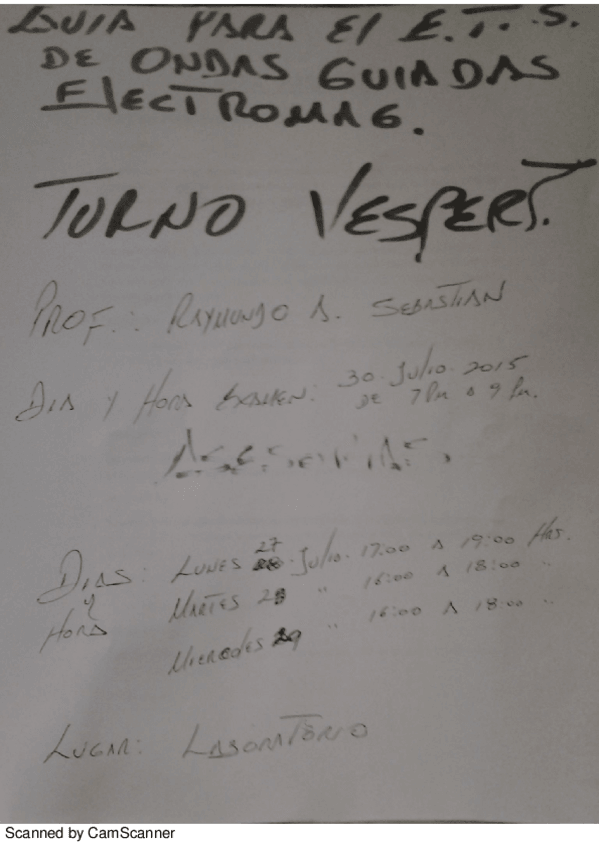 GUIA PARA El E.T.S.
DE ONDAS GUIADAS
ElECTROMAG.
TURNO VESPERT.
PROF.: RAYMUNDO A. SEBASTIAN
DIA Y HORA EXAMEN: 30. Julio. 2015
DE 7 Pm a 9 Pm.
ASESORIAS.
DIAS: LUNES 27 Julio. 17:00 A 19:00 Hrs.
Y MARTES 28 " 16:00 A 18:00 "
HORA
MIERCOLES 29 " 16:00 A 18:00 "
LUGAR: LABORATORIO
Scanned by CamScanner